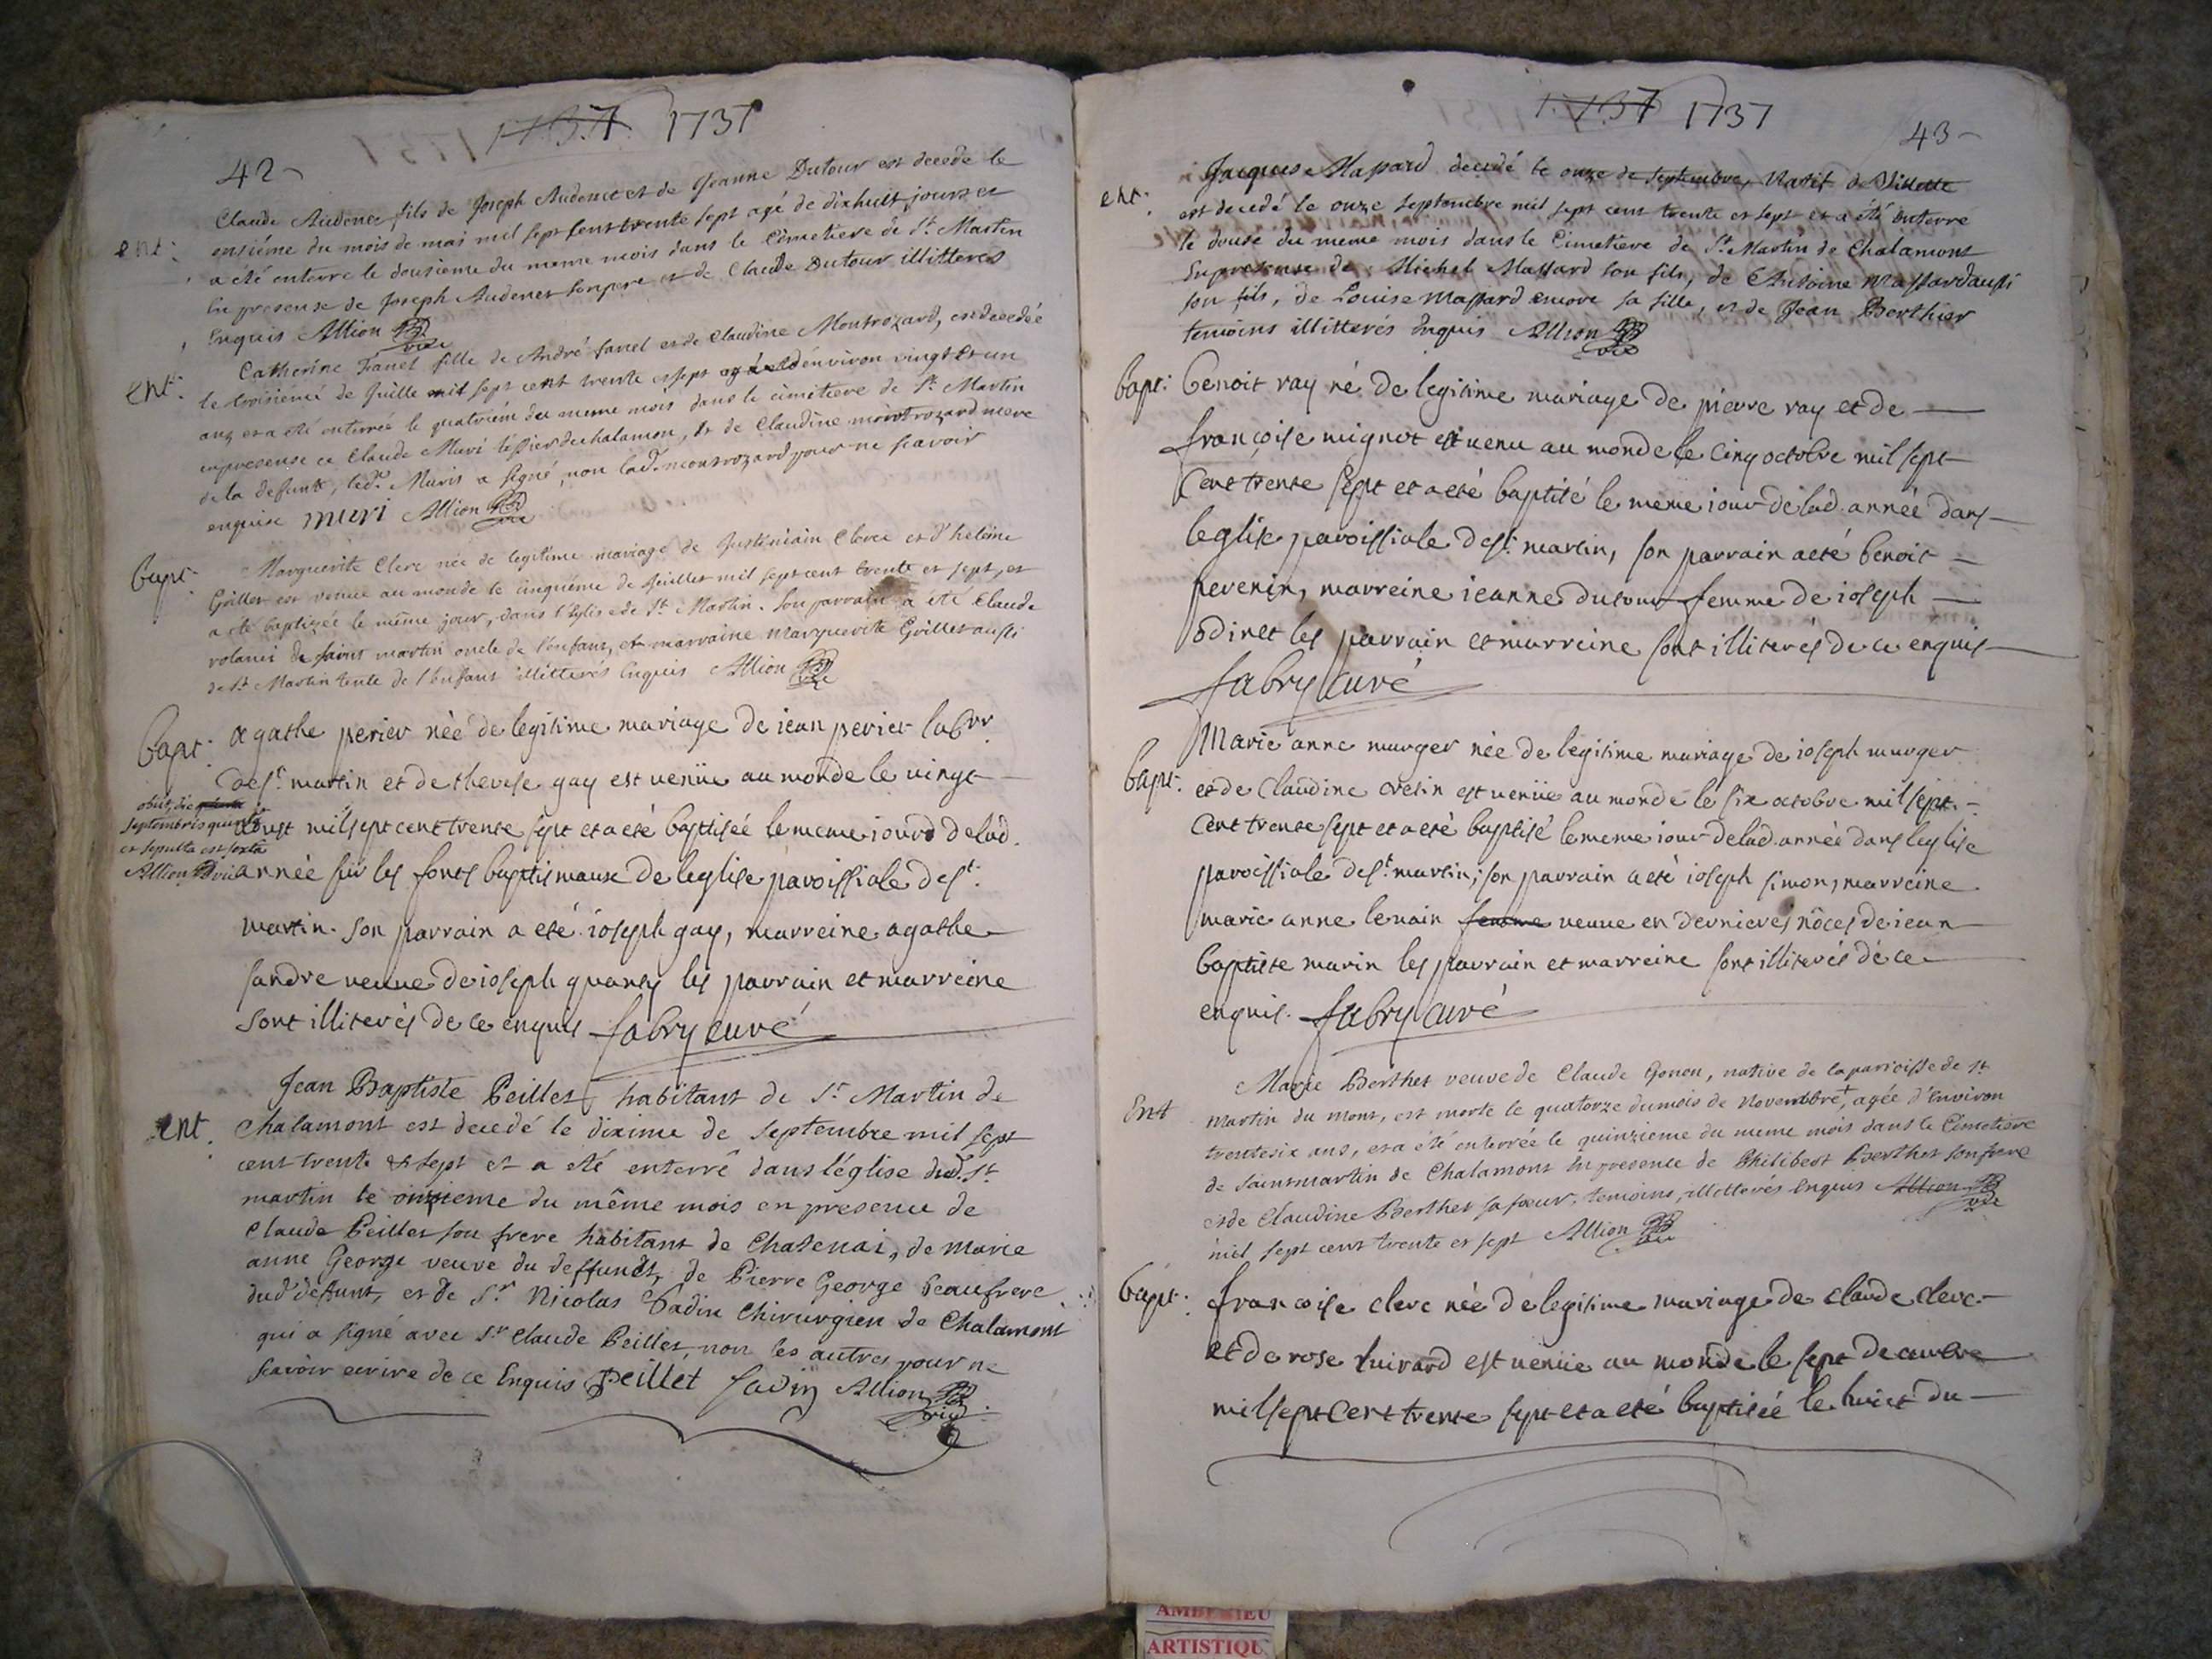 1737 1737
42
Claude Audenet fils de Joseph Audenet et de Jeanne Dutour est decede le
ent: onsiéme du mois de mai mil sept sent trente sept agé de dixhuit jours et
a été enterre le dousieme du meme mois dans le Cimetiere de St. Martin
En presense de Joseph Audenet son pere et de Claude Dutour illitteres
Enquis Allion vic
Catherine Fanet fille de André fanet et de Claudine Montrozard, est decedée
ent: le troisiémé de Juille mil sept cent trente et sept agée d'environ vingt et un
ans et a été enterrée le quatriém du meme mois dans le cimetiere de St. Martin
en presense de Claude Muri tessier de chalamon, et de Claudine montrozard mere
de la defunte, led. Muris a signé, non lad. montrozard pour ne scavoir
enquise muri Allion vic
Bapt: Marguerite Clerc née de legitime mariage de Justiniain Clerc et d'heleine
Grillet est venue au monde le cinquiéme de Juillet mil sept cent trente et sept, et
a été baptizée le même jour, dans l'Eglise de St. Martin. Son parrain a été Claude
rolanci de saint martin oncle de l'enfant, et marraine Marguerite Grillet aussi
de St Martin tente de l'enfant illitterés Enquis Allion vic
Bapt: agathe perier née de legitime mariage de jean perier labor
de st. martin et de therese gay est venüe au monde le vingt
obiit die
septembris quinta
et sepulta est sexta
Allion vic
aoust mil sept cent trente sept et a eté baptisée le meme jour de lad.
année sur les fonts baptismaux de leglise paroissiale de st.
martin. son parrain a eté joseph gay, marreine agathe
sandre veuve de joseph quarty les parrain et marreine
sont illiterés de ce enquis fabry curé
Jean Baptiste Peillet habitant de St Martin de
ent. Chalamont est decedé le dixime de septembre mil sept
cent trente et sept et a eté enterré dans l'église dud. St.
martin le onzieme du même mois en presence de
Claude Peillet son frere habitant de Chatenai, de Marie
anne George veuve du deffunct, de Pierre George beaufrere
dud defunt, et de Sr Nicolas Sadin Chirurgien de Chalamont
qui a signé avec Sr Claude Peillet, non les autres pour ne
scavoir ecrire de ce Enquis Peillet Sadin Allion vic
1737 1737
43
Jacques Massard decedé le onze de septembre, Natif de Villette
ent: est decedé le onze septembre mil sept cent trente et sept et a été enterre
le douse du meme mois dans le Cimetiere de St. Martin de Chalamont
En presense de Michel Massard son fils, de Antoine Massard aussi
son fils, de Louise Massard encore sa fille, et de Jean Berthier
temoins illitterés Enquis Allion vic
Bapt: Benoit ray né de legitime mariage de pierre ray et de
françoise mignot est venu au monde le cinq octobre mil sept
cent trente sept et a eté baptisé le meme jour de lad. année dans
leglise paroissiale de st. martin, son parrain a eté benoit
pevenin, marreine jeanne dutour femme de joseph
odinet les parrain et marreine sont illiterés de ce enquis
fabry curé
Marie anne murger née de legitime mariage de joseph murger
Bapt: et de Claudine cretin est venüe au monde le six octobre mil sept
cent trente sept et a eté baptisé le meme jour de lad. année dans leglise
paroissiale de st. martin, son parrain a eté joseph simon, marreine
marie anne lenain femme veuve en dernieres nôces de jean
baptiste marin les parrain et marreine sont illiterés de ce
enquis. fabry curé
Marie Berthet veuve de Claude Gonon, native de la parroisse de st
Ent martin du mont, est morte le quatorze du mois de Novembre+, agée d'Environ
trentesix ans, et a été enterrée le quinzieme du meme mois dans le Cimetiere
de saint martin de Chalamont En presence de Philibert Berthet son frere
et de Claudine Berthet sa sœur, temoins, illitterés Enquis Allion vic
mil sept cent trente et sept Allion vic
Bapt: françoise clerc née de legitime mariage de claude clerc
et de rose huirard est venüe au monde le sept decembre
mil sept cent trente sept et a eté baptisée le huict du
AMBERIEU
ARTISTIQU